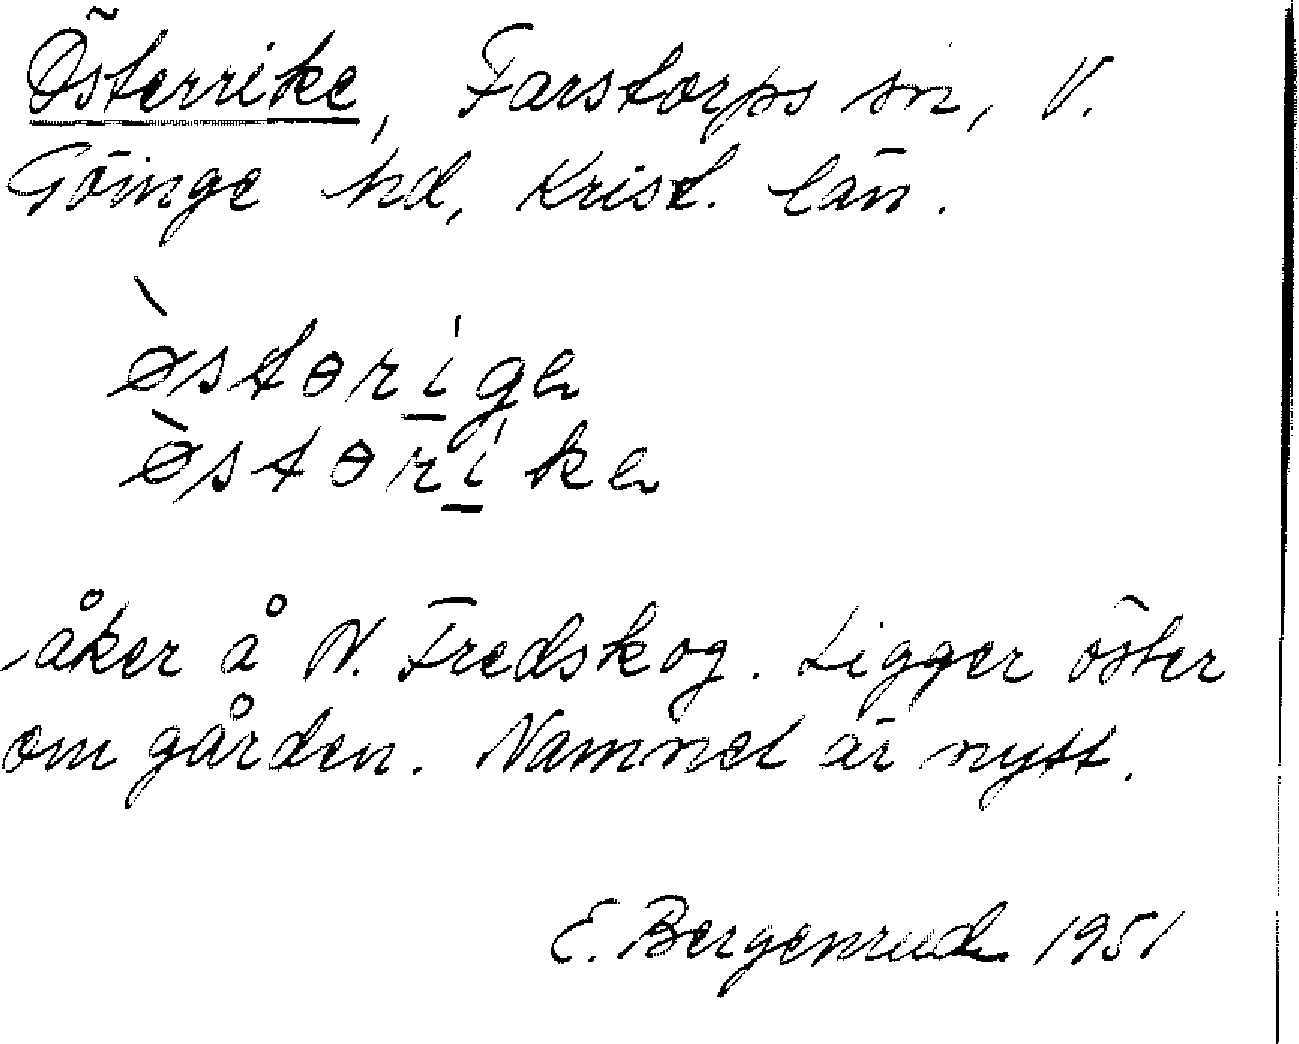 Österrike, Farstorps sn, V.
Göinge hd, Krist. län.
ø̀stərige
ø̀stərike
åker å N. Fredskog. Ligger öster
om gården. Namnet är nytt.
E. Bergenrud 1951